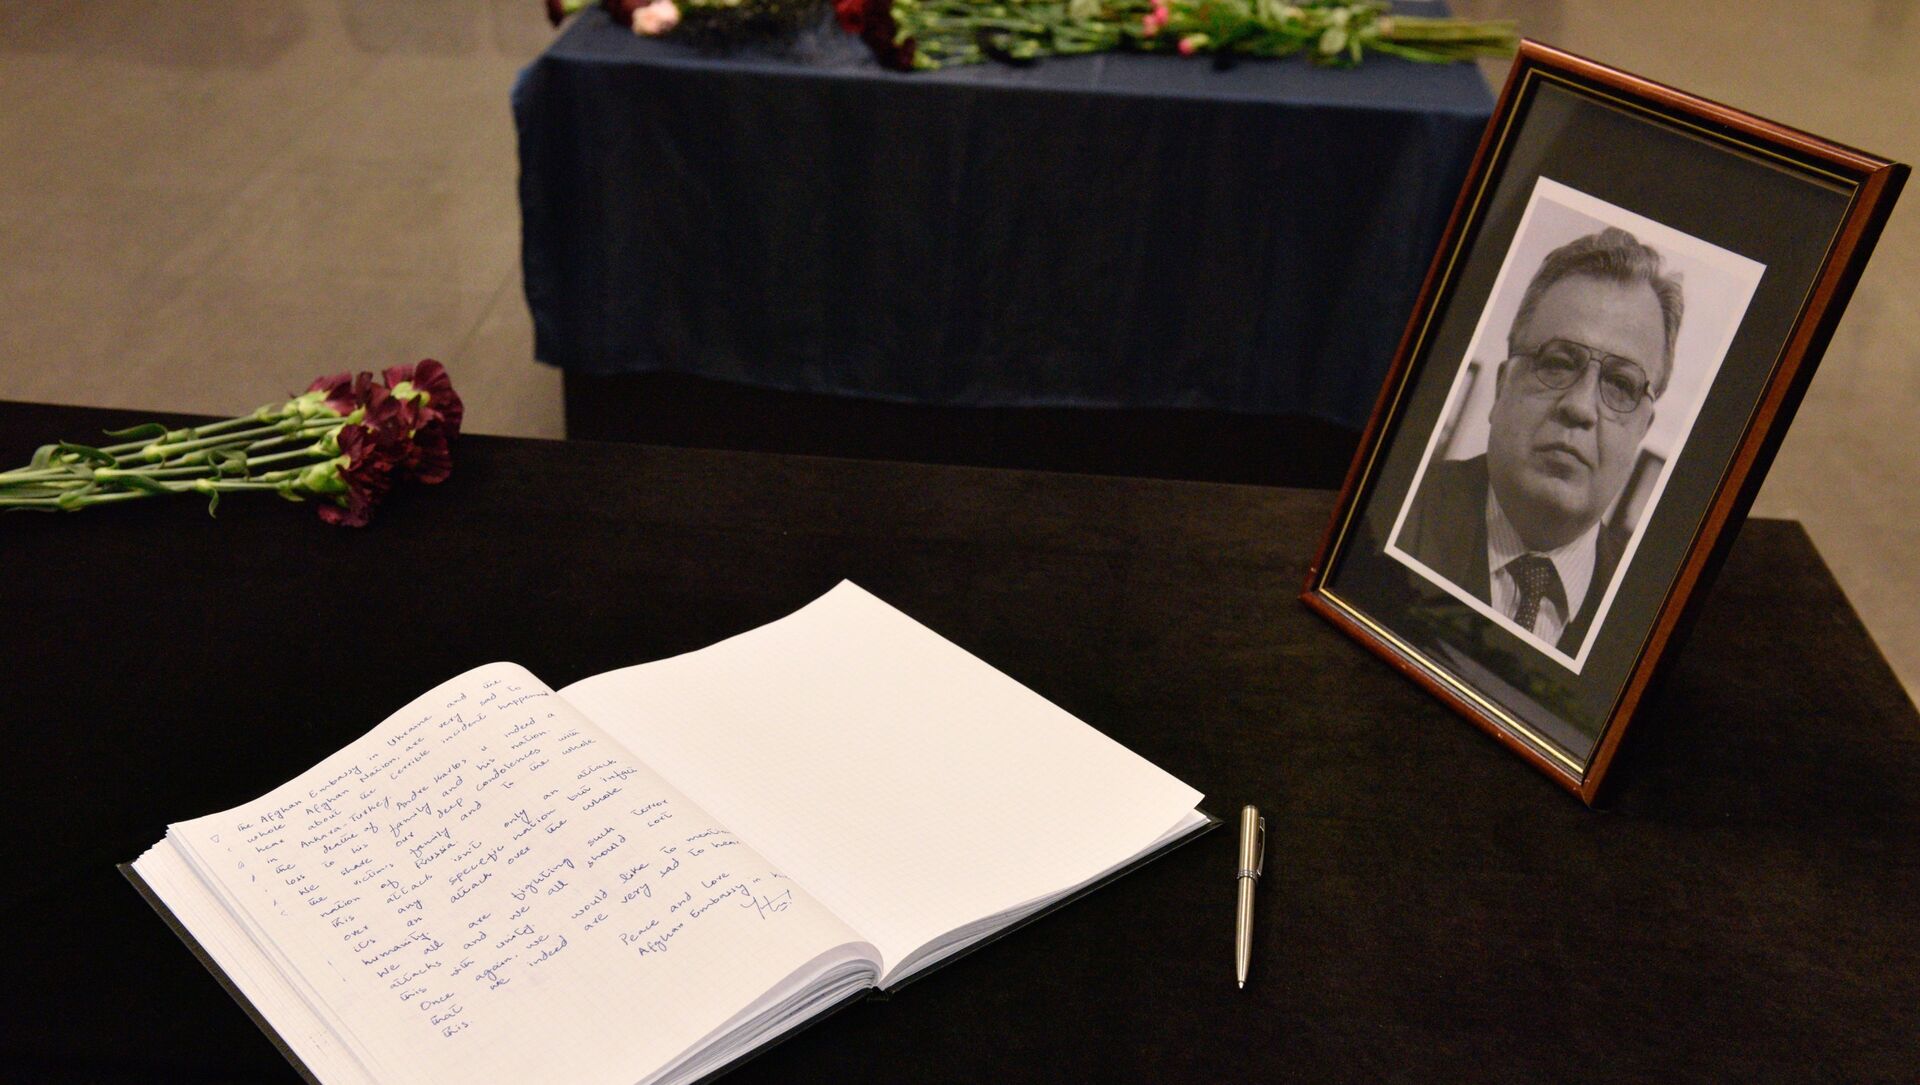 The Afghan Embassy in Ukraine and the
whole Afghan Nation, are very sad to
hear about the terrible incident happened
in Ankara-Turkey.
the deathe of Andre Karlos is indeed a
loss to his family and his nation.
We share our deep condolences with
the victims family and to the whole
nation of Russia.
this attack isn't only an attack
over any specefic nation but infact
its an attack over the whole
humanity.
We all are fighting such terror
attacks and we all should sort
this with unity
Once again, we would like to
that we indeed are very sad to hear
this.
Peace and Love
Afghan Embassy in